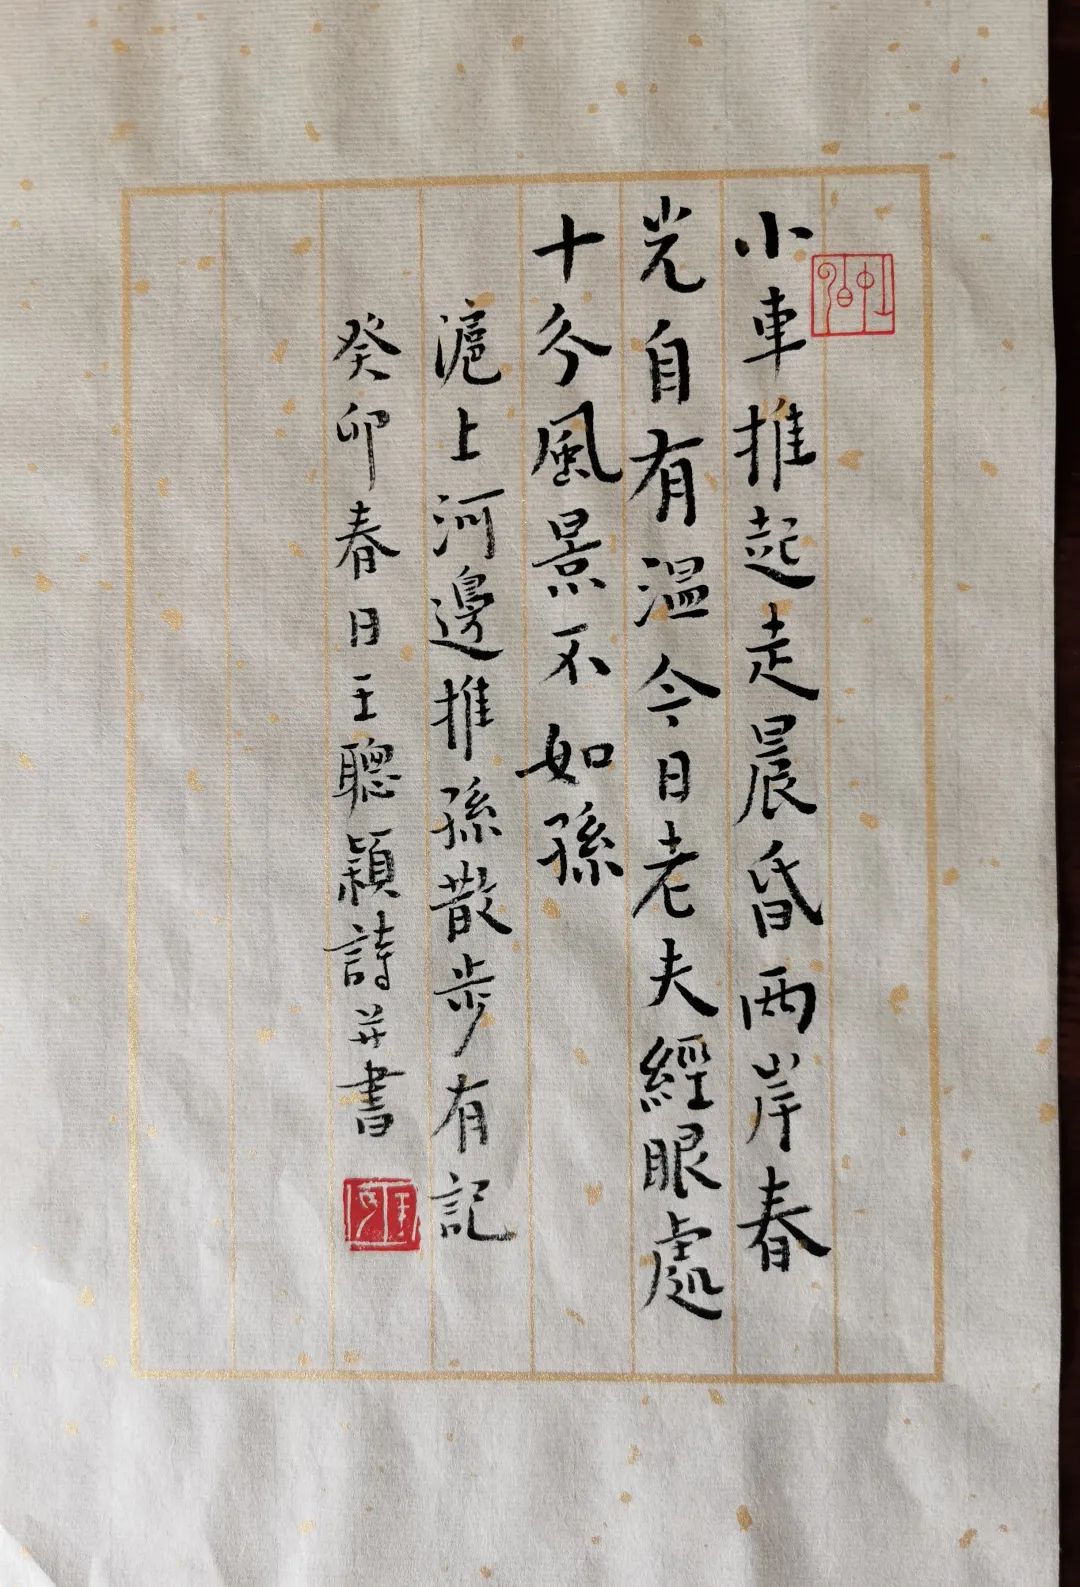 小車推起走晨昏兩岸春
光自有溫今日老夫經眼處
十分風景不如孫
滬上河邊推孫散步有記
癸卯春日王聰穎詩并書